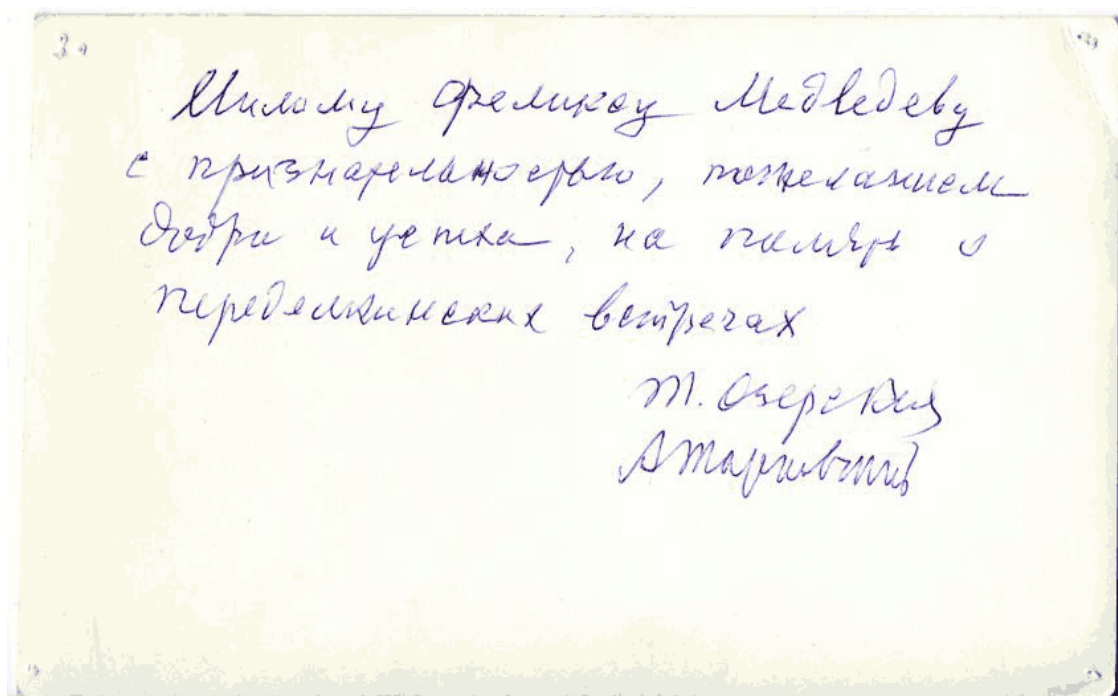 Милому Феликсу Медведеву
с признательностью, пожеланием
добра и успеха, на память о
переделкинских встречах
Т. Озерская
А Тарковский